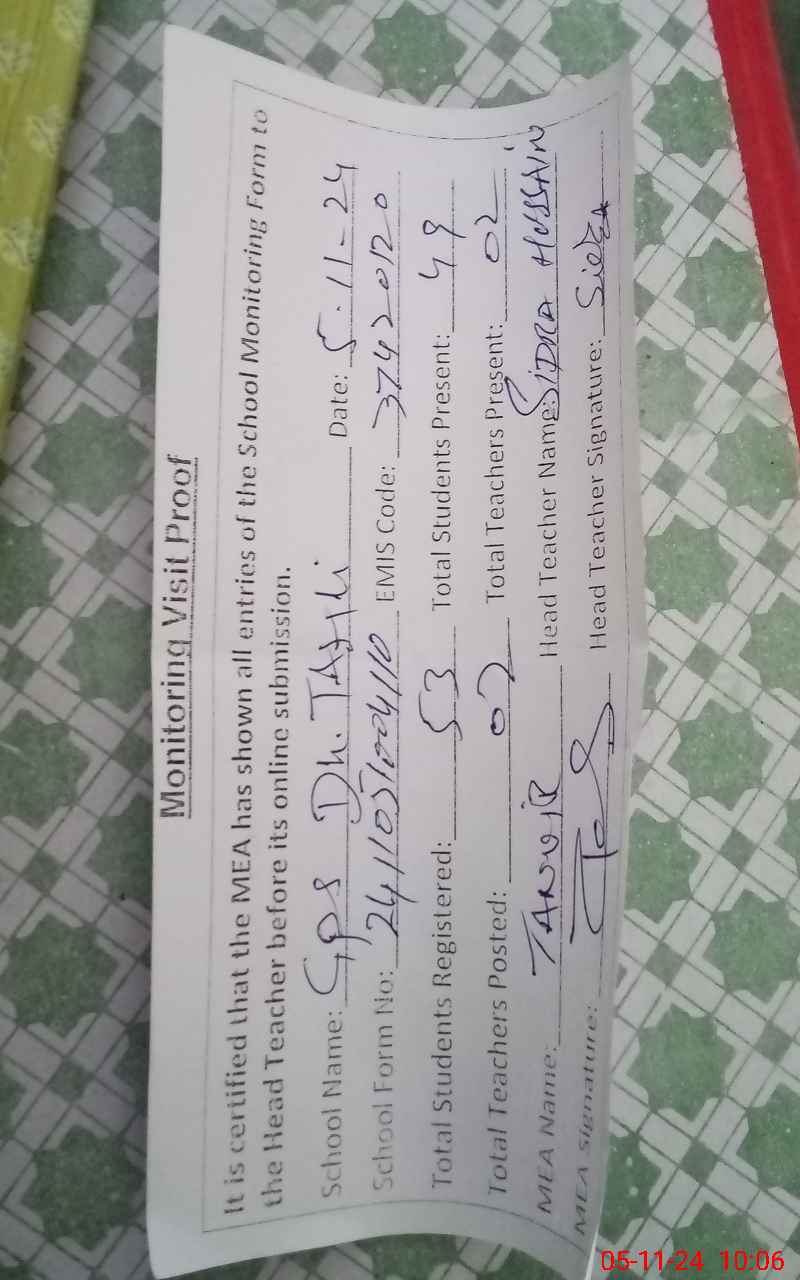 Monitoring Visit Proof
It is certified that the MEA has shown all entries of the School Monitoring Form to
the Head Teacher before its online submission.
School Name: GPS Dh. Date: 5-11-24
School Form No: EMIS Code: 37420120
Total Students Registered: 53 Total Students Present: 49
Total Teachers Posted: 02 Total Teachers Present: 02
MEA Name: TANVIR Head Teacher Name: SIDRA HUSSAIN
MEA Signature: Head Teacher Signature: Sidra
05-11-24 10:06